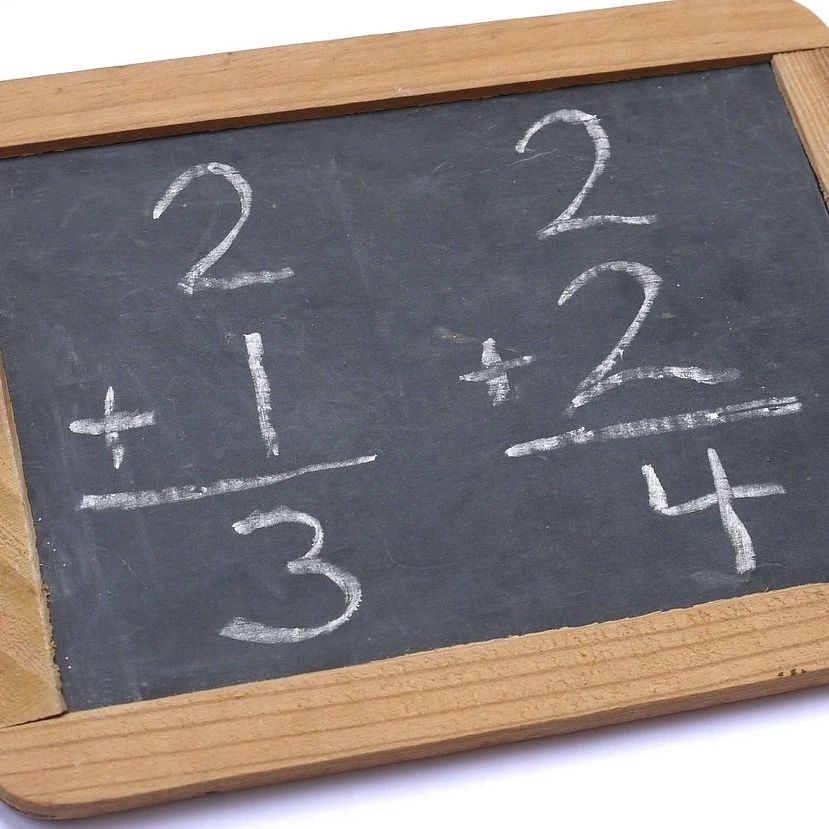 2
+ 1
3
2
+ 2
4